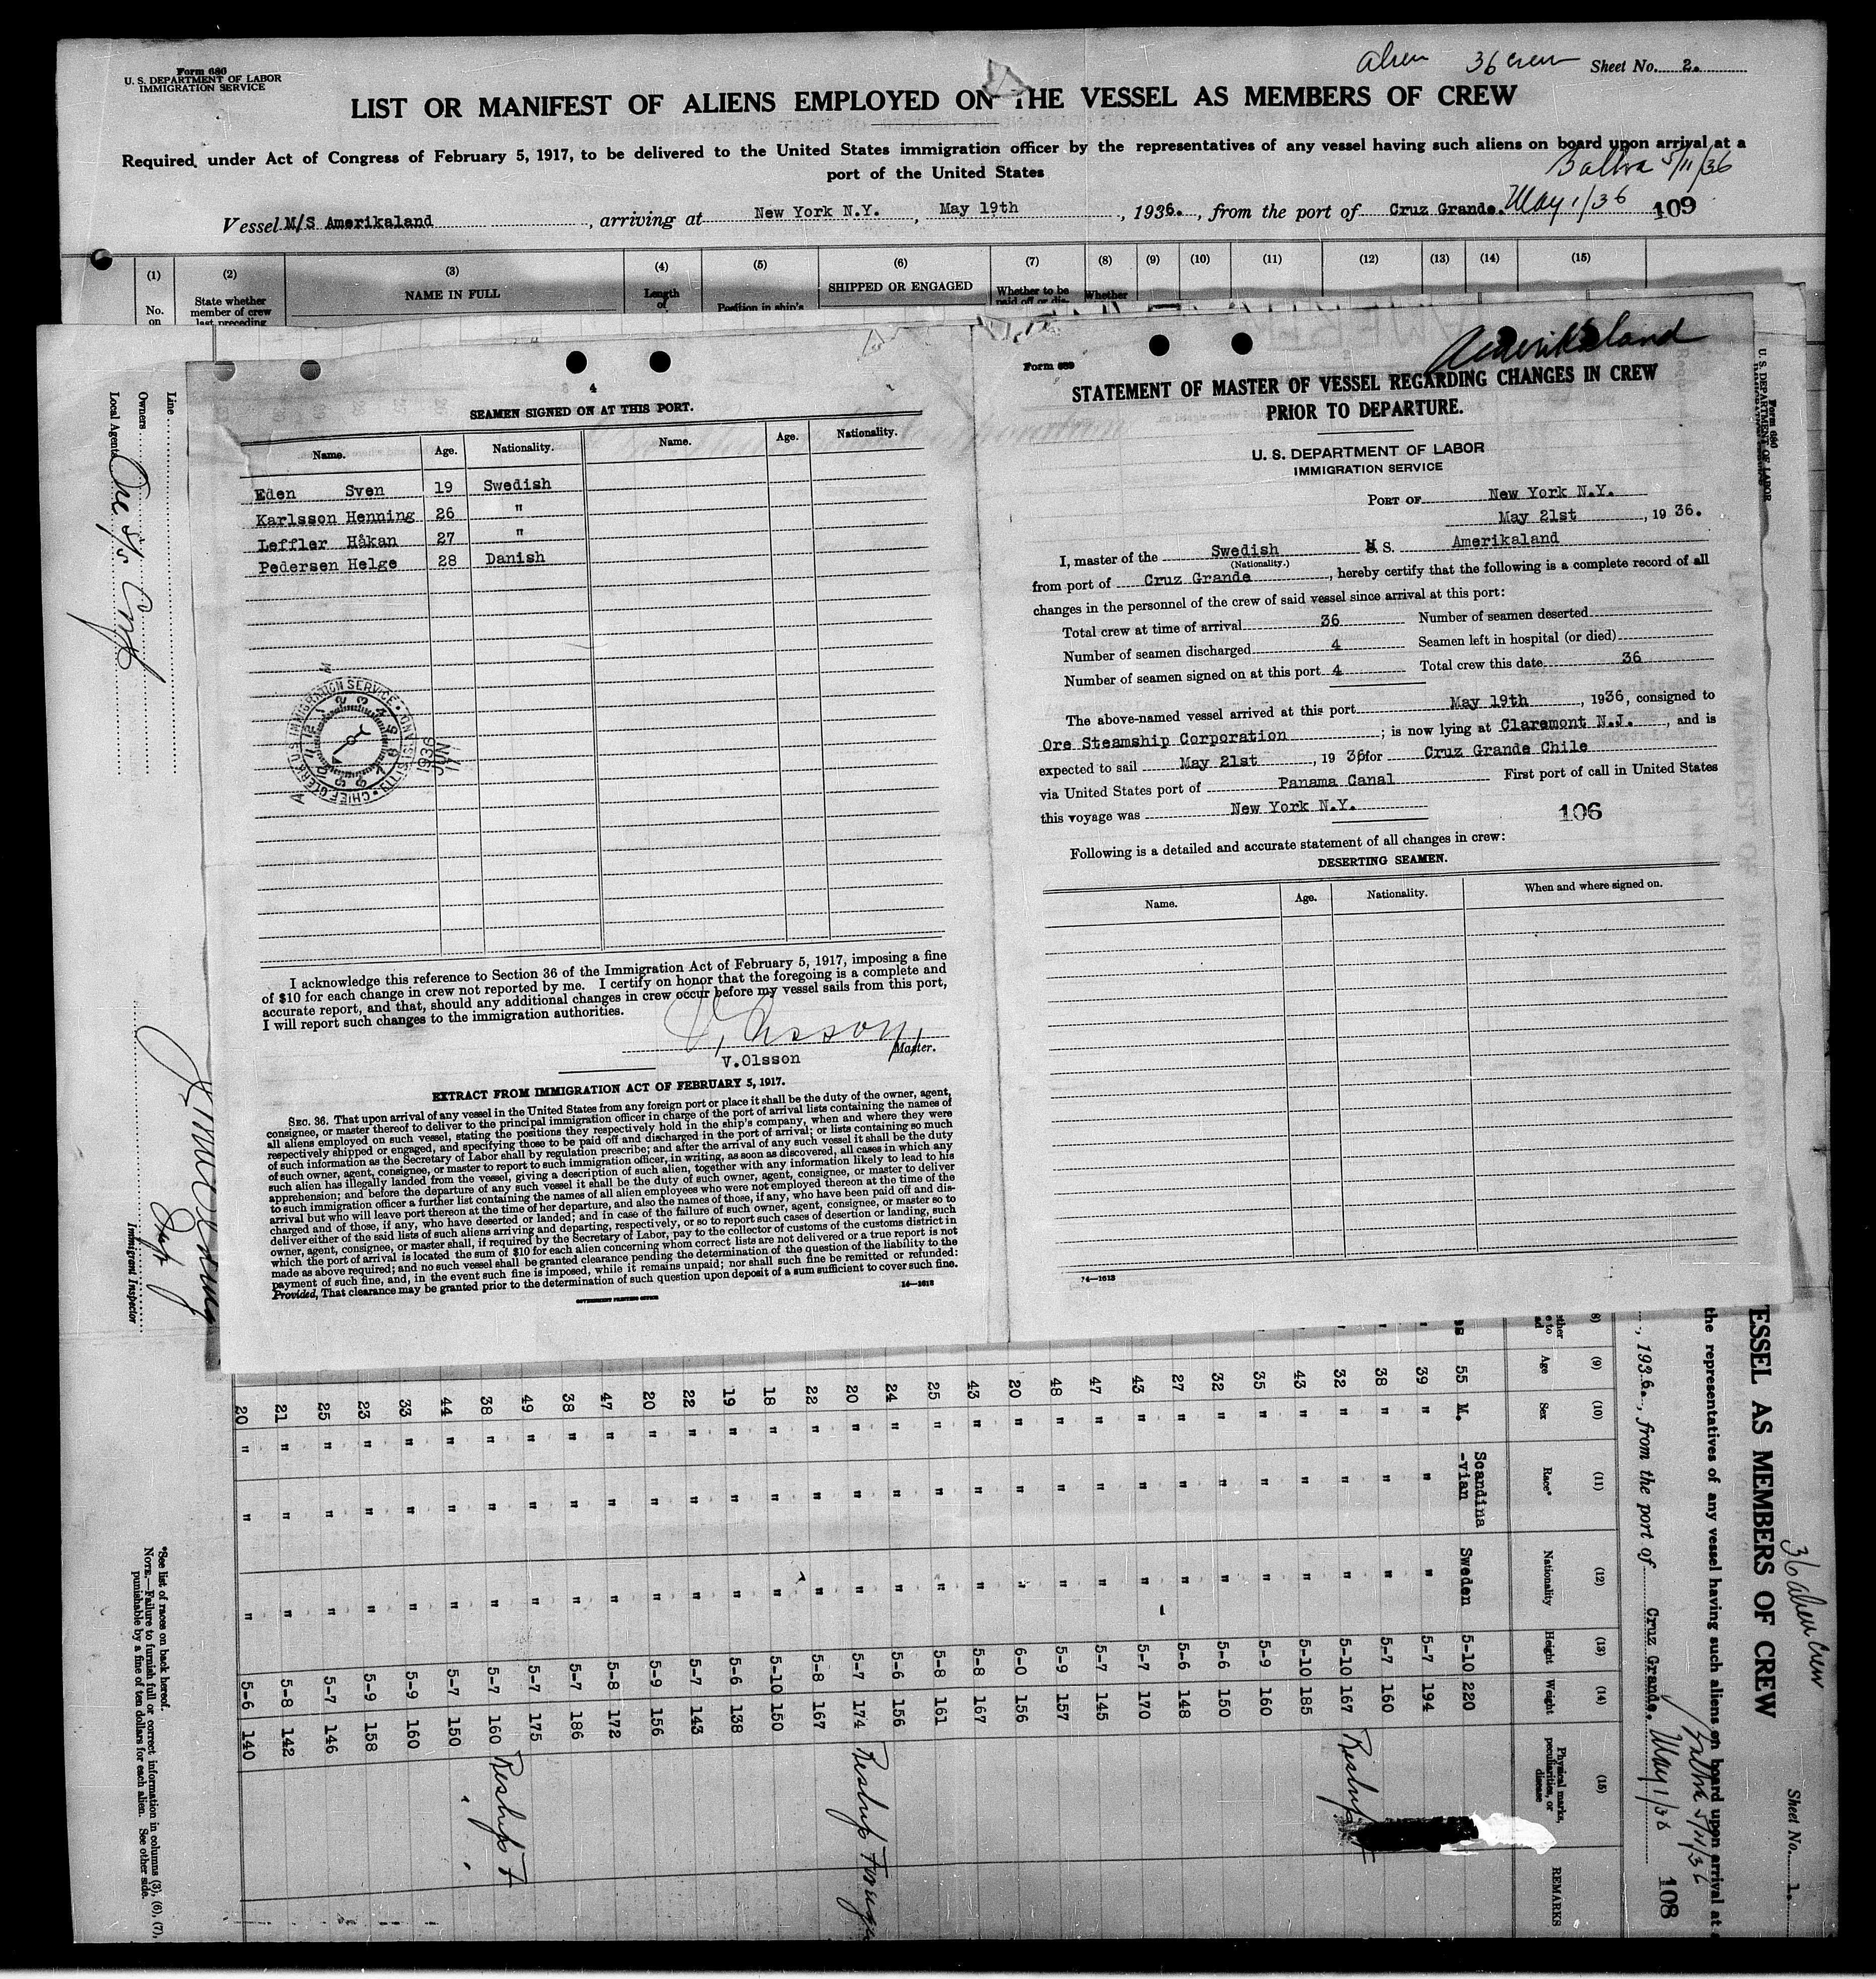 Form 680
U. S. DEPARTMENT OF LABOR
IMMIGRATION SERVICE
Alien 36 crew Sheet No. 2.
LIST OR MANIFEST OF ALIENS EMPLOYED ON THE VESSEL AS MEMBERS OF CREW
Required under Act of Congress of February 5, 1917, to be delivered to the United States immigration officer by the representatives of any vessel having such aliens on board upon arrival at a
port of the United States
Balboa 5/11/36
Vessel M/S Amerikaland, arriving at New York N.Y., May 19th, 1936., from the port of Cruz Grande. May 1/36 109
(1) (2) (3) (4) (5) (6) (7) (8) (9) (10) (11) (12) (13) (14) (15)
No. on
State whether member of crew last preceding
NAME IN FULL
Length of
Position in ship's
SHIPPED OR ENGAGED
Whether to be paid off or dis-
Whether
4
SEAMEN SIGNED ON AT THIS PORT.
Name. Age. Nationality. Name. Age. Nationality.
Eden Sven 19 Swedish
Karlsson Henning 26 "
Leffler Håkan 27 "
Pedersen Helge 28 Danish
U.S. IMMIGRATION SERVICE
CHIEF CLERK
1936 JUN
I acknowledge this reference to Section 36 of the Immigration Act of February 5, 1917, imposing a fine
of $10 for each change in crew not reported by me. I certify on honor that the foregoing is a complete and
accurate report, and that, should any additional changes in crew occur before my vessel sails from this port,
I will report such changes to the immigration authorities.
V. Olsson
Master.
V.Olsson
EXTRACT FROM IMMIGRATION ACT OF FEBRUARY 5, 1917.
SEC. 36. That upon arrival of any vessel in the United States from any foreign port or place it shall be the duty of the owner, agent,
consignee, or master thereof to deliver to the principal immigration officer in charge of the port of arrival lists containing the names of
all aliens employed on such vessel, stating the positions they respectively hold in the ship's company, when and where they were
respectively shipped or engaged, and specifying those to be paid off and discharged in the port of arrival; or lists containing so much
of such information as the Secretary of Labor shall by regulation prescribe; and after the arrival of any such vessel it shall be the duty
of such owner, agent, consignee, or master to report to such immigration officer, in writing, as soon as discovered, all cases in which any
such alien has illegally landed from the vessel, giving a description of such alien, together with any information likely to lead to his
apprehension; and before the departure of any such vessel it shall be the duty of such owner, agent, consignee, or master to deliver
to such immigration officer a further list containing the names of all alien employees who were not employed thereon at the time of the
arrival but who will leave port thereon at the time of her departure, and also the names of those, if any, who have been paid off and dis-
charged and of those, if any, who have deserted or landed; and in case of the failure of such owner, agent, consignee, or master so to
deliver either of the said lists of such aliens arriving and departing, respectively, or so to report such cases of desertion or landing, such
owner, agent, consignee, or master shall, if required by the Secretary of Labor, pay to the collector of customs of the customs district in
which the port of arrival is located the sum of $10 for each alien concerning whom correct lists are not delivered or a true report is not
made as above required; and no such vessel shall be granted clearance pending the determination of the question of the liability to the
payment of such fine, and, in the event such fine is imposed, while it remains unpaid; nor shall such fine be remitted or refunded:
Provided, That clearance may be granted prior to the determination of such question upon deposit of a sum sufficient to cover such fine.
GOVERNMENT PRINTING OFFICE
14—1613
Amerikaland
Form 689
STATEMENT OF MASTER OF VESSEL REGARDING CHANGES IN CREW
PRIOR TO DEPARTURE.
U. S. DEPARTMENT OF LABOR
IMMIGRATION SERVICE
PORT OF New York N.Y.
May 21st, 1936.
I, master of the Swedish M S. Amerikaland
(Nationality.)
from port of Cruz Grande, hereby certify that the following is a complete record of all
changes in the personnel of the crew of said vessel since arrival at this port:
Total crew at time of arrival 36 Number of seamen deserted
Number of seamen discharged 4 Seamen left in hospital (or died)
Number of seamen signed on at this port 4 Total crew this date 36
The above-named vessel arrived at this port May 19th, 1936, consigned to
Ore Steamship Corporation; is now lying at Claremont N.J., and is
expected to sail May 21st, 1936 for Cruz Grande Chile
via United States port of Panama Canal First port of call in United States
this voyage was New York N.Y. 106
Following is a detailed and accurate statement of all changes in crew:
DESERTING SEAMEN.
Name. Age. Nationality. When and where signed on.
14—1613
Form 680
U. S. DEPARTMENT OF LABOR
Line
Owners
Local Agents Ore S/S Corp
Immigrant Inspector
36 alien crew Sheet No. 1.
ESSEL AS MEMBERS OF CREW
the representatives of any vessel having such aliens on board upon arrival at a
Balboa 5/11/36
, 1936., from the port of Cruz Grande. May 1/36 108
(9) (10) (11) (12) (13) (14) (15)
Age Sex Race* Nationality Height Weight Physical marks, peculiarities, or disease REMARKS
55 M. Scandina-vian Sweden 5-10 220
39 " " " 5-7 194
38 " " " 5-7 160
32 " " " 5-10 167 Reship
43 " " " 5-10 185
35 " " " 5-9 160
32 " " " 5-6 150
27 " " " 5-6 148
43 " " " 5-7 170
47 " " " 5-7 145
48 " " " 5-9 157
20 " " " 6-0 156
43 " " " 5-8 167
25 " " " 5-8 161
24 " " " 5-6 156
20 " " " 5-7 174 Reship Foreign
22 " " " 5-8 167
18 " " " 5-10 150
19 " " " 5-6 138
22 " " " 5-7 143
20 " " " 5-9 156
47 " " " 5-8 172
38 " " " 5-7 186
49 " " " 5-7 175
38 " " " 5-7 160 Reship F
44 " " " 5-7 150
33 " " " 5-9 160
23 " " " 5-9 158
25 " " " 5-7 146
21 " " " 5-8 142
20 " " " 5-6 140
*See list of races on back hereof.
NOTE.—Failure to furnish full or correct information in columns (3), (6), (7),
punishable by a fine of ten dollars for each alien. See other side.